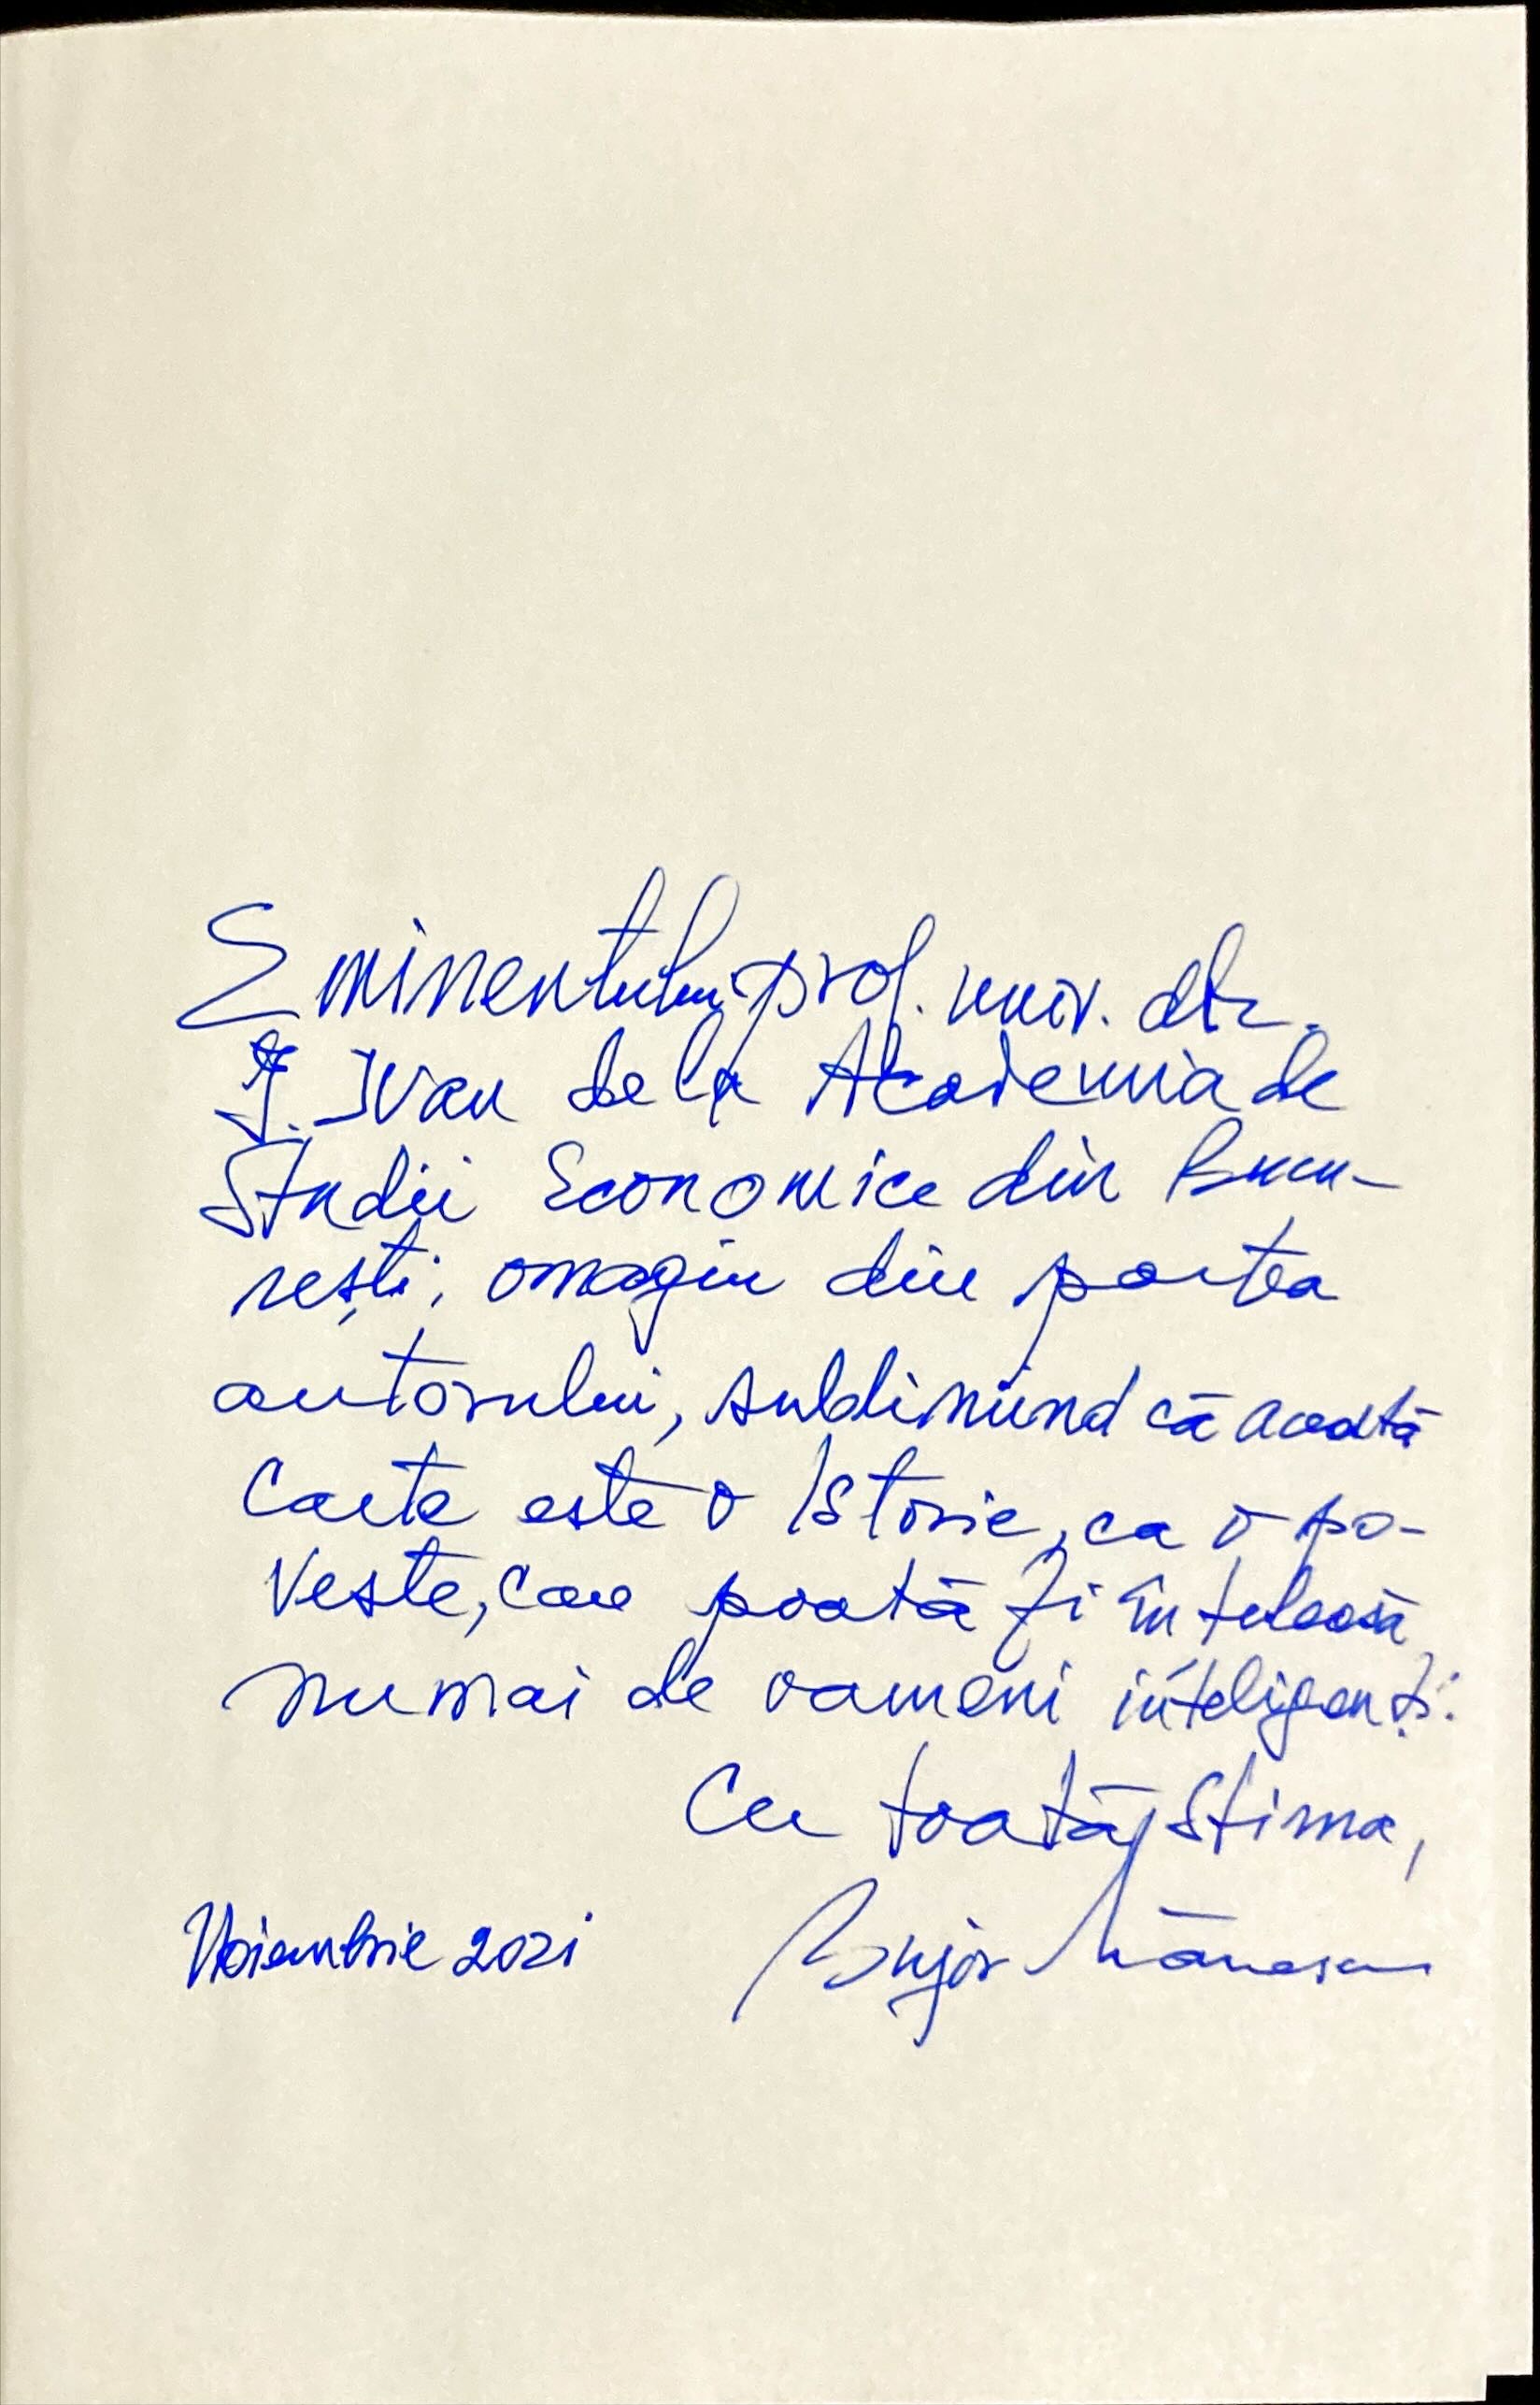 Eminentului prof. univ. dr.
I. Ivan de la Academia de
Studii Economice din Bucu-
rești, omagiu din partea
autorului, subliniind că aceată
carte este o Istorie, ca o po-
veste, care poată fi înteleasă
numai de oameni inteligenți.
Cu toată stima,
Noiembrie 2021 Bujor